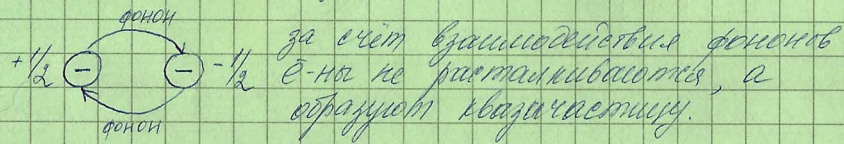 фонон
+1/2 − − −1/2
фонон
за счёт взаимодействия фононов
ē-ны не расталкиваются, а
образуют квазичастицу.